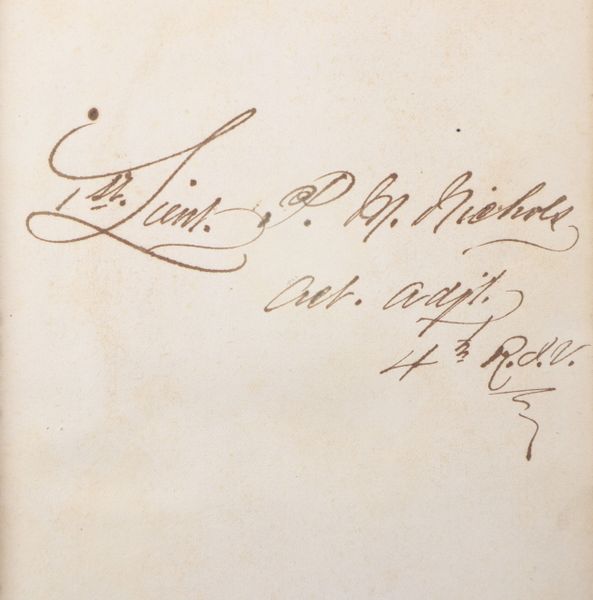 1st. Lieut. P. M. Nichols
Act. Adjt.
4th R.I.V.